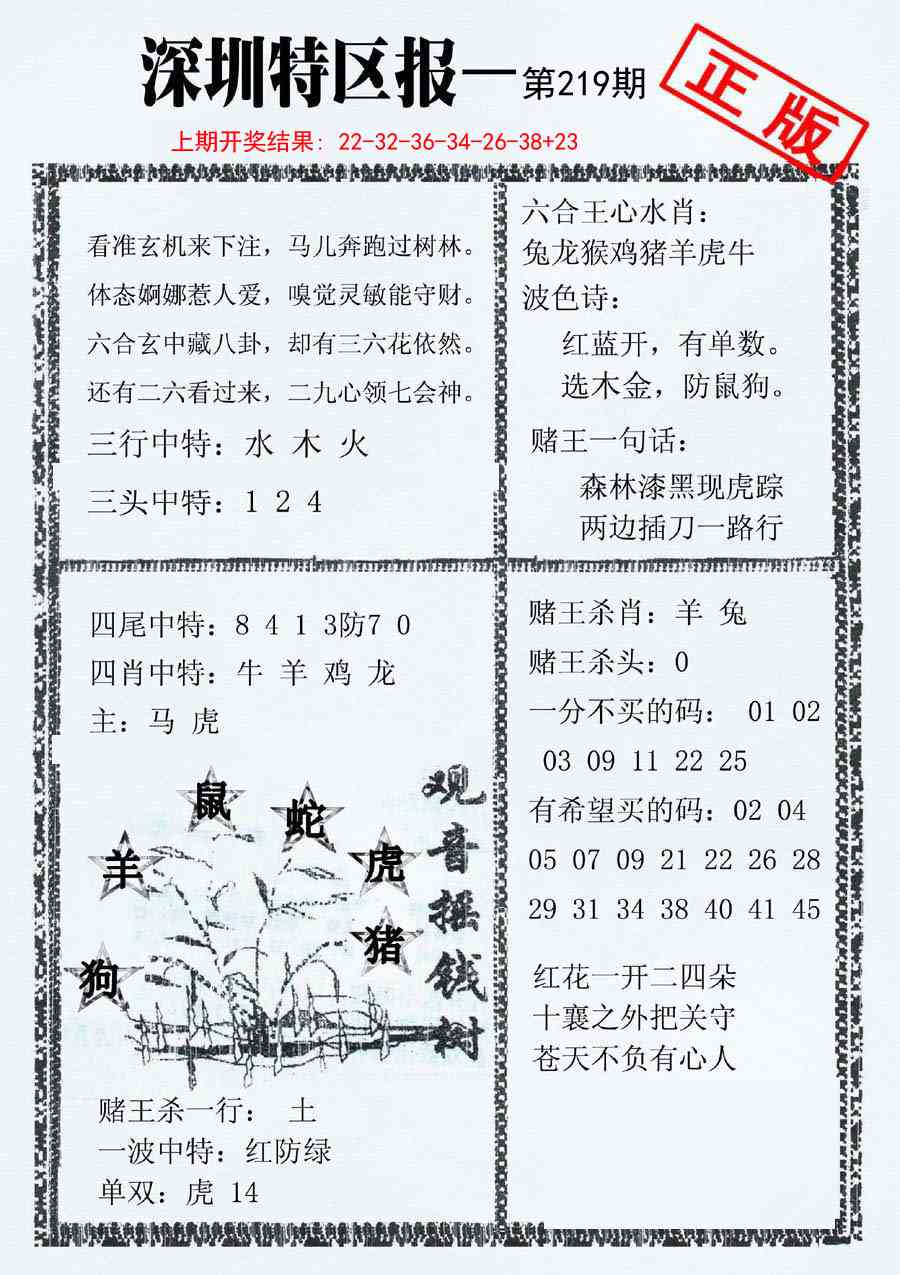 深圳特区报—第219期
正版
上期开奖结果：22-32-36-34-26-38+23
看准玄机来下注，马儿奔跑过树林。
体态婀娜惹人爱，嗅觉灵敏能守财。
六合玄中藏八卦，却有三六花依然。
还有二六看过来，二九心领七会神。
三行中特：水 木 火
三头中特：1 2 4
六合王心水肖：
兔龙猴鸡猪羊虎牛
波色诗：
红蓝开，有单数。
选木金，防鼠狗。
赌王一句话：
森林漆黑现虎踪
两边插刀一路行
四尾中特：8 4 1 3防7 0
四肖中特：牛 羊 鸡 龙
主：马 虎
鼠
蛇
羊
虎
猪
狗
观音摇钱树
赌王杀一行： 土
一波中特：红防绿
单双：虎 14
赌王杀肖：羊 兔
赌王杀头：0
一分不买的码： 01 02
03 09 11 22 25
有希望买的码：02 04
05 07 09 21 22 26 28
29 31 34 38 40 41 45
红花一开二四朵
十襄之外把关守
苍天不负有心人